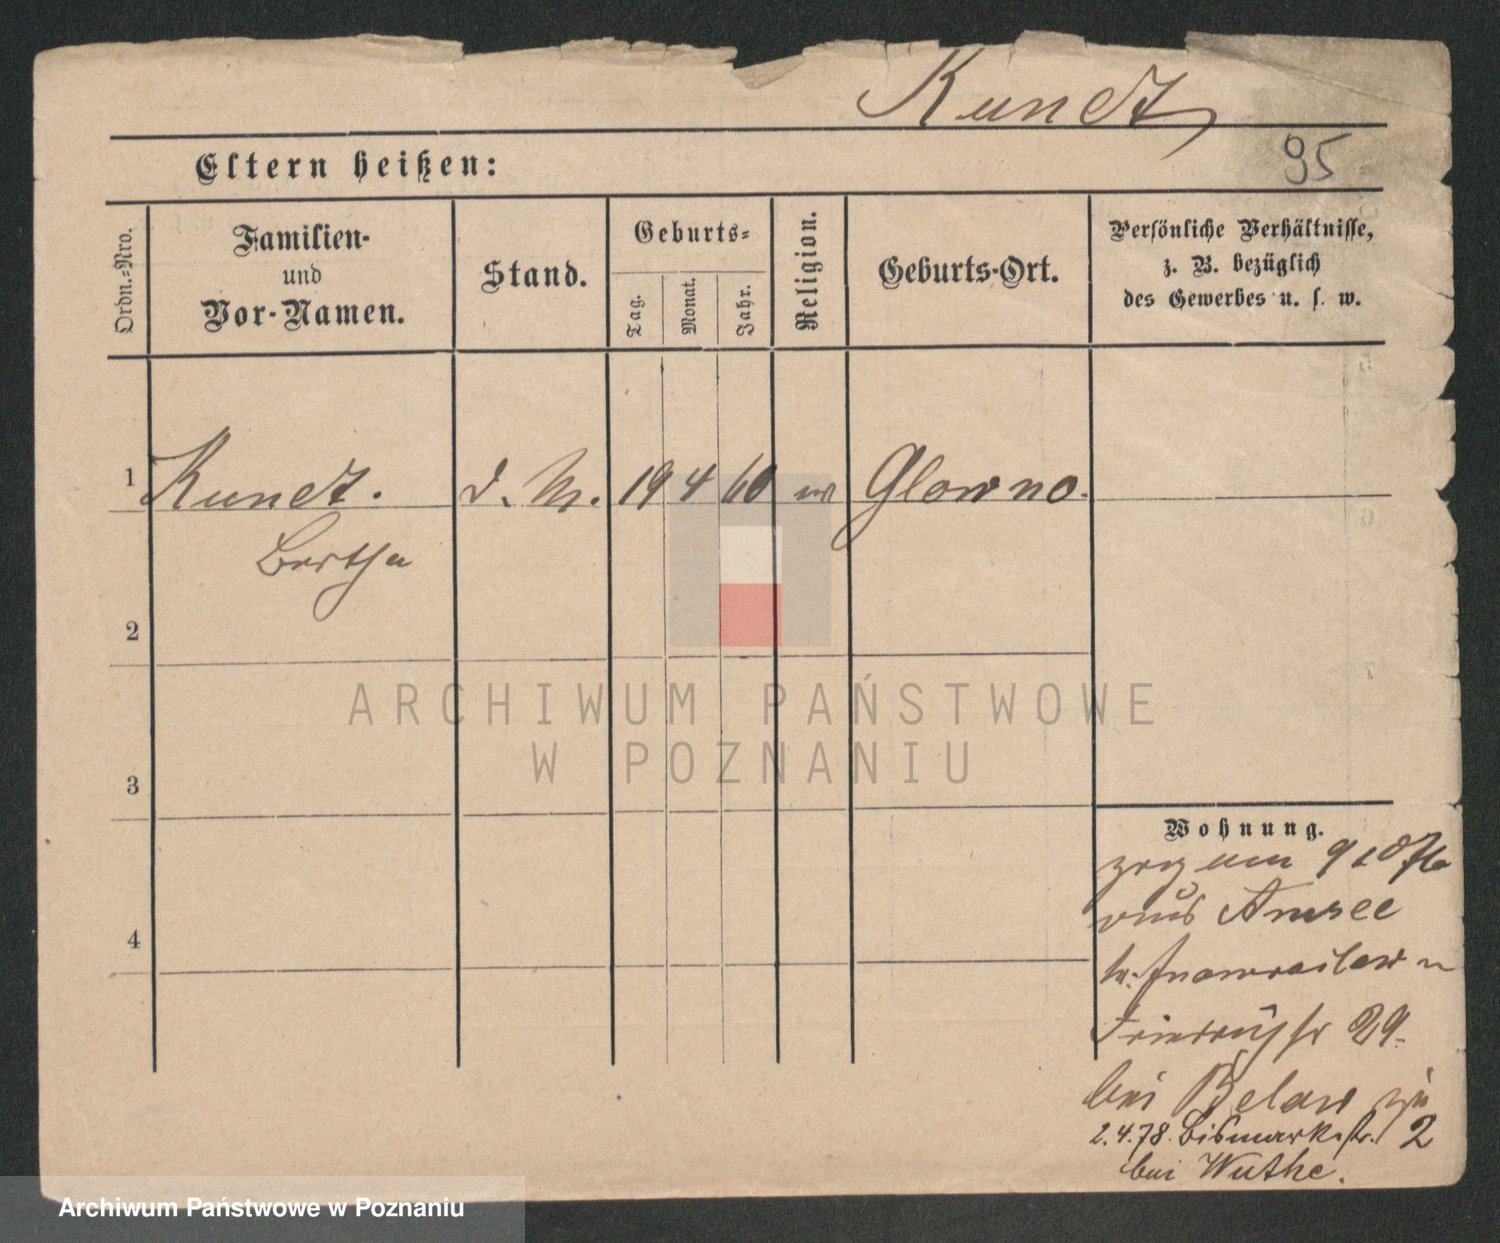 Kundt
95
Eltern heißen:
Ordn.-Nro.
Familien-
und
Vor-Namen.
Stand.
Geburts-
Tag.
Monat.
Jahr.
Religion.
Geburts-Ort.
Persönliche Verhältnisse,
z. B. bezüglich
des Gewerbes u. s. w.
1 Kundt. d. M. 19 4 60 ev Glowno.
Bertha
2
3
4
Wohnung.
zog am 9 10 76
aus Amsee
b. Inowraclaw n
Friedrichstr 29.
bei Below
2.4.78. Bismarkstr. 2
bei Wuthe.
ARCHIWUM PAŃSTWOWE
W POZNANIU
Archiwum Państwowe w Poznaniu